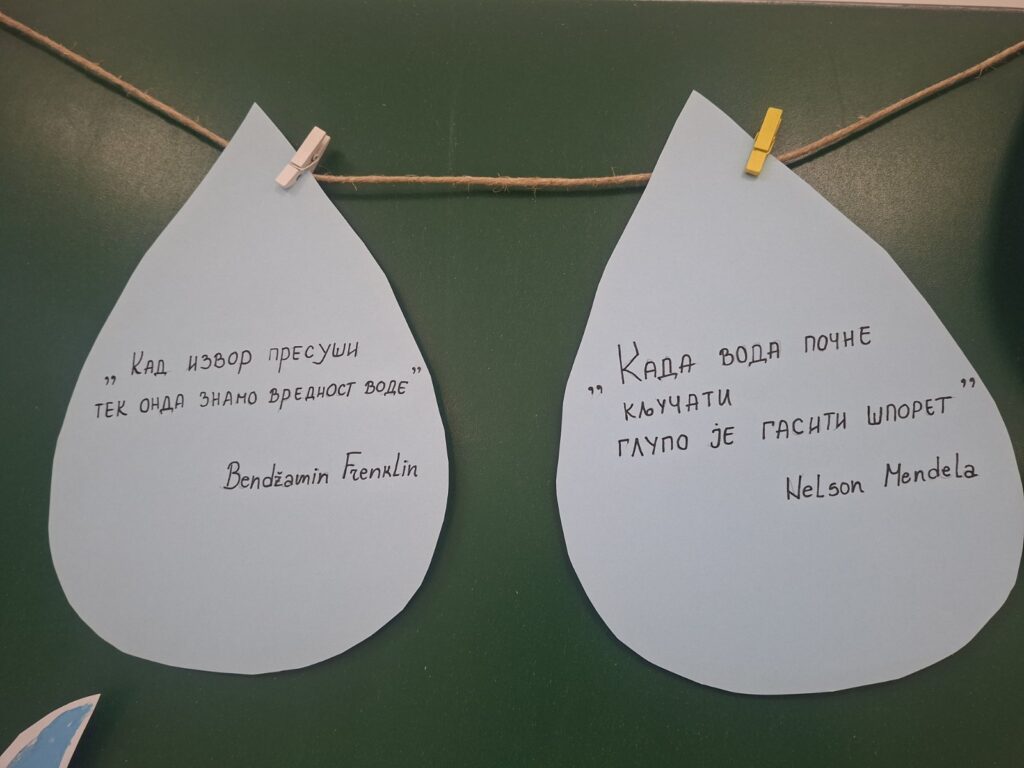 „ Кад извор пресуши
тек онда знамо вредност воде”
Bendžamin Frenklin
„ Када вода почне
кључати
глупо је гасити шпорет”
Nelson Mendela